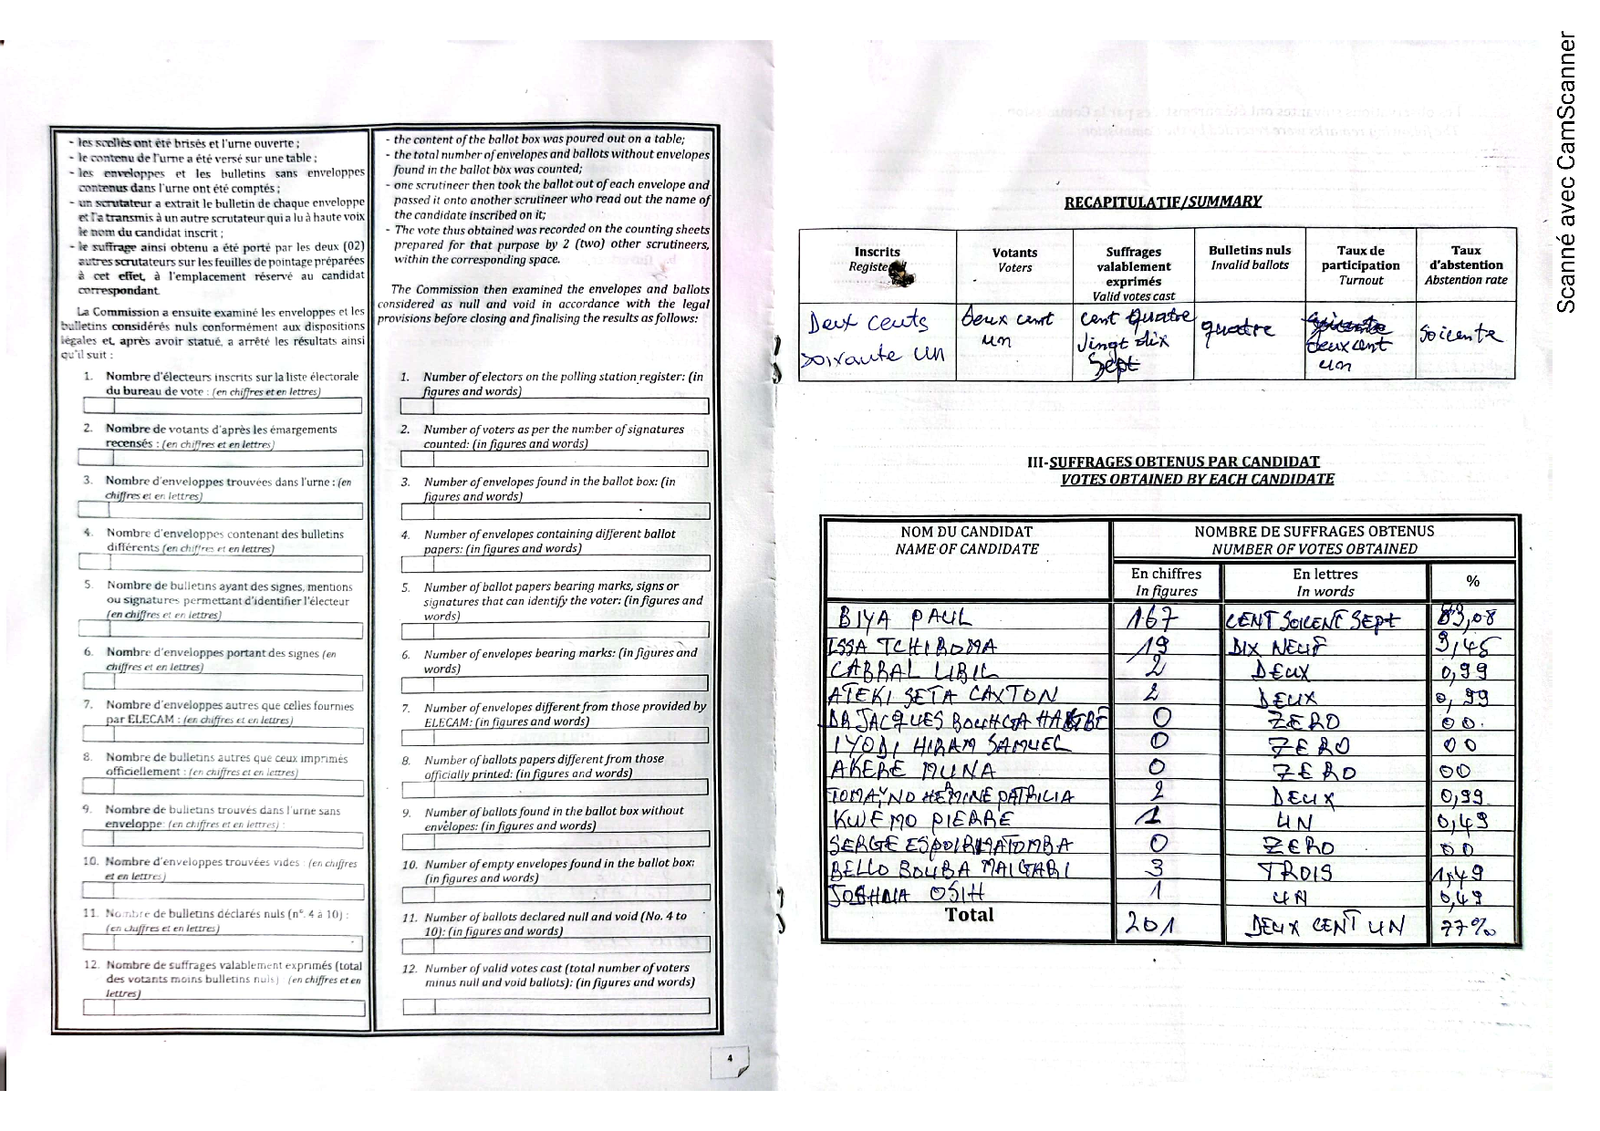 - les scellés ont été brisés et l'urne ouverte ;
- le contenu de l'urne a été versé sur une table ;
- les enveloppes et les bulletins sans enveloppes
contenus dans l'urne ont été comptés ;
- un scrutateur a extrait le bulletin de chaque enveloppe
et l'a transmis à un autre scrutateur qui a lu à haute voix
le nom du candidat inscrit ;
- le suffrage ainsi obtenu a été porté par les deux (02)
autres scrutateurs sur les feuilles de pointage préparées
à cet effet, à l'emplacement réservé au candidat
correspondant.
La Commission a ensuite examiné les enveloppes et les
bulletins considérés nuls conformément aux dispositions
légales et, après avoir statué, a arrêté les résultats ainsi
qu'il suit :
1. Nombre d'électeurs inscrits sur la liste électorale
du bureau de vote : (en chiffres et en lettres)
2. Nombre de votants d'après les émargements
recensés : (en chiffres et en lettres)
3. Nombre d'enveloppes trouvées dans l'urne : (en
chiffres et en lettres)
4. Nombre d'enveloppes contenant des bulletins
différents (en chiffres et en lettres)
5. Nombre de bulletins ayant des signes, mentions
ou signatures permettant d'identifier l'électeur
(en chiffres et en lettres)
6. Nombre d'enveloppes portant des signes (en
chiffres et en lettres)
7. Nombre d'enveloppes autres que celles fournies
par ELECAM : (en chiffres et en lettres)
8. Nombre de bulletins autres que ceux imprimés
officiellement : (en chiffres et en lettres)
9. Nombre de bulletins trouvés dans l'urne sans
enveloppe: (en chiffres et en lettres) :
10. Nombre d'enveloppes trouvées vides : (en chiffres
et en lettres)
11. Nombre de bulletins déclarés nuls (n°. 4 à 10) :
(en chiffres et en lettres)
12. Nombre de suffrages valablement exprimés (total
des votants moins bulletins nuls) (en chiffres et en
lettres)
- the content of the ballot box was poured out on a table;
- the total number of envelopes and ballots without envelopes
found in the ballot box was counted;
- one scrutineer then took the ballot out of each envelope and
passed it onto another scrutineer who read out the name of
the candidate inscribed on it;
- The vote thus obtained was recorded on the counting sheets
prepared for that purpose by 2 (two) other scrutineers,
within the corresponding space.
The Commission then examined the envelopes and ballots
considered as null and void in accordance with the legal
provisions before closing and finalising the results as follows:
1. Number of electors on the polling station register: (in
figures and words)
2. Number of voters as per the number of signatures
counted: (in figures and words)
3. Number of envelopes found in the ballot box: (in
figures and words)
4. Number of envelopes containing different ballot
papers: (in figures and words)
5. Number of ballot papers bearing marks, signs or
signatures that can identify the voter: (in figures and
words)
6. Number of envelopes bearing marks: (in figures and
words)
7. Number of envelopes different from those provided by
ELECAM: (in figures and words)
8. Number of ballots papers different from those
officially printed: (in figures and words)
9. Number of ballots found in the ballot box without
envelopes: (in figures and words)
10. Number of empty envelopes found in the ballot box:
(in figures and words)
11. Number of ballots declared null and void (No. 4 to
10): (in figures and words)
12. Number of valid votes cast (total number of voters
minus null and void ballots): (in figures and words)
4
RECAPITULATIF/SUMMARY
Inscrits Registe
Votants Voters
Suffrages valablement exprimés Valid votes cast
Bulletins nuls Invalid ballots
Taux de participation Turnout
Taux d'abstention Abstention rate
Deux cents soixante un
deux cent un
cent quatre vingt dix sept
quatre
deux cent un
soicente
III-SUFFRAGES OBTENUS PAR CANDIDAT
VOTES OBTAINED BY EACH CANDIDATE
NOM DU CANDIDAT NOMBRE DE SUFFRAGES OBTENUS
NAME OF CANDIDATE NUMBER OF VOTES OBTAINED
En chiffres En lettres %
In figures In words
BIYA PAUL 167 CENT SOICENT SEPT 83,08
ISSA TCHIROMA 19 DIX NEUF 9,45
CABRAL LIBIL 2 DEUX 0,99
ATEKI SETA CAXTON 2 DEUX 0,99
DR JACQUES BOUHGA 0 ZERO 00.
IYODI HIRAM SAMUEL 0 ZERO 00
AKERE MUNA 0 ZERO 00
TOMAÏNO HERMINE PATRICIA 2 DEUX 0,99
KWEMO PIERRE 1 UN 0,49
SERGE ESPOIR MATOMBA 0 ZERO 00
BELLO BOUBA MAIGARI 3 TROIS 1,49
JOSHUA OSIH 1 UN 0,49
Total 201 DEUX CENT UN 77%
Scanné avec CamScanner